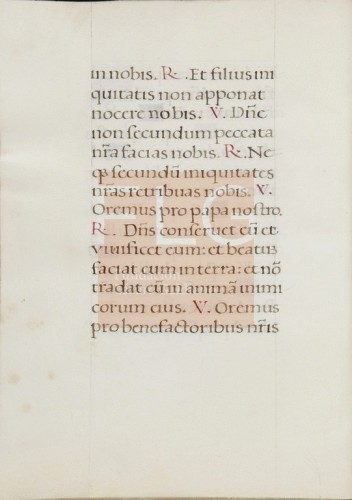 in nobis. R. Et filius ini
quitatis non apponat
nocere nobis. V. Dñe
non secundum peccata
nr̃a facias nobis. R. Ne
q̃ secundũ iniquitates
nr̃as retribuas nobis. V.
Oremus pro papa nostro.
R. Dñs conseruet eũ et
viuificet eum: et beatũ
faciat eum in terra: et nõ
tradat eũ in animã inimi
corum eius. V. Oremus
pro benefactoribus nr̃is
FLG